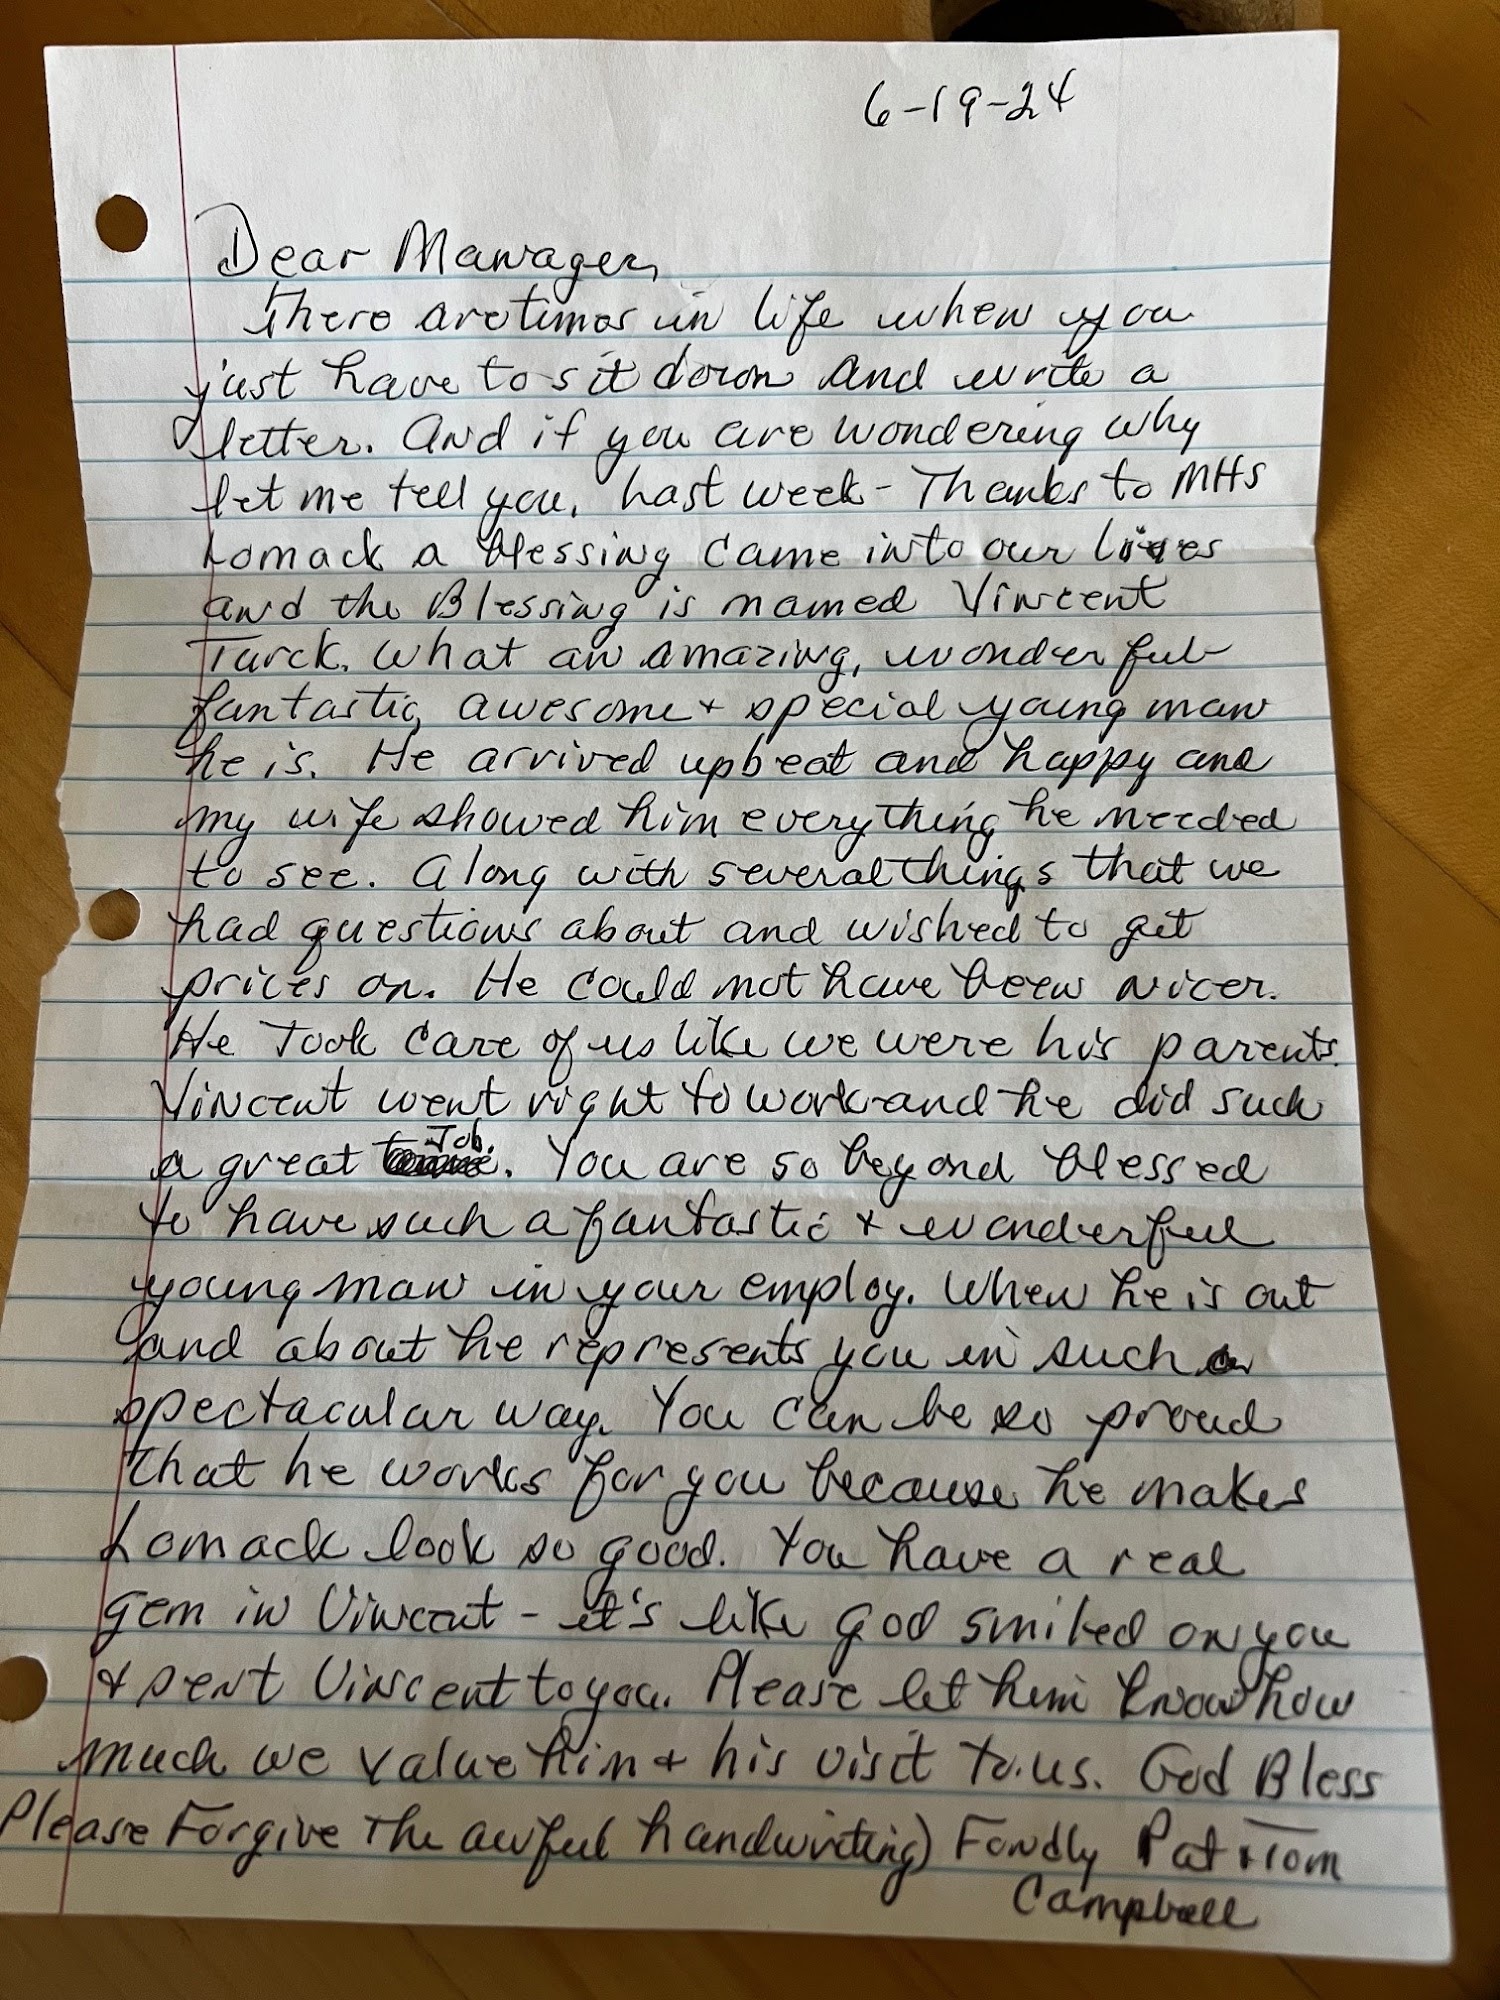 6-19-24
Dear Manager,
There are times in life when you
just have to sit down and write a
letter. And if you are wondering why
let me tell you. Last week - Thanks to MHS
Lomack a blessing came into our lives
and the Blessing is named Vincent
Turck. What an amazing, wonderful
fantastic, awesome + special young man
he is. He arrived upbeat and happy and
my wife showed him everything he needed
to see. Along with several things that we
had questions about and wished to get
prices on. He could not have been nicer.
He Took care of us like we were his parents.
Vincent went right to work and he did such
a great Job. You are so beyond blessed
to have such a fantastic + wonderful
young man in your employ. When he is out
and about he represents you in such a
spectacular way. You can be so proud
that he works for you because he makes
Lomack look so good. You have a real
gem in Vincent - it's like God smiled on you
+ sent Vincent to you. Please let him know how
much we value him + his visit to us. God Bless
Please Forgive The awful handwriting) Fondly Pat + Tom
Campbell